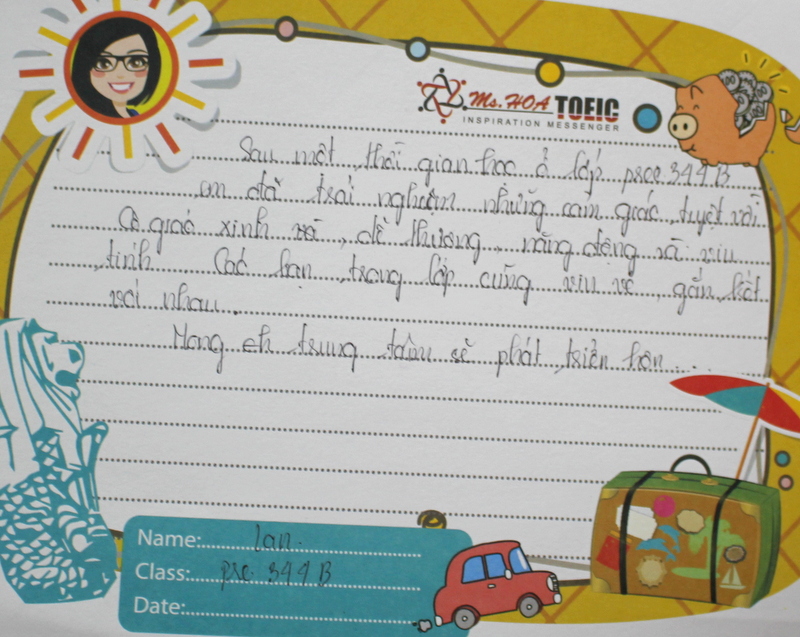 Ms. HOA TOEIC
INSPIRATION MESSENGER
Sau một thời gian học ở lớp pree 344B
em đã trải nghiệm những cảm giác tuyệt vời
Cô giáo xinh xắn, dễ thương, năng động và vui
tính. Các bạn trong lớp cũng vui vẻ, gắn kết
với nhau.
Mong trung tâm sẽ phát triển hơn...
Name: Lan.
Class: pre 344B
Date: